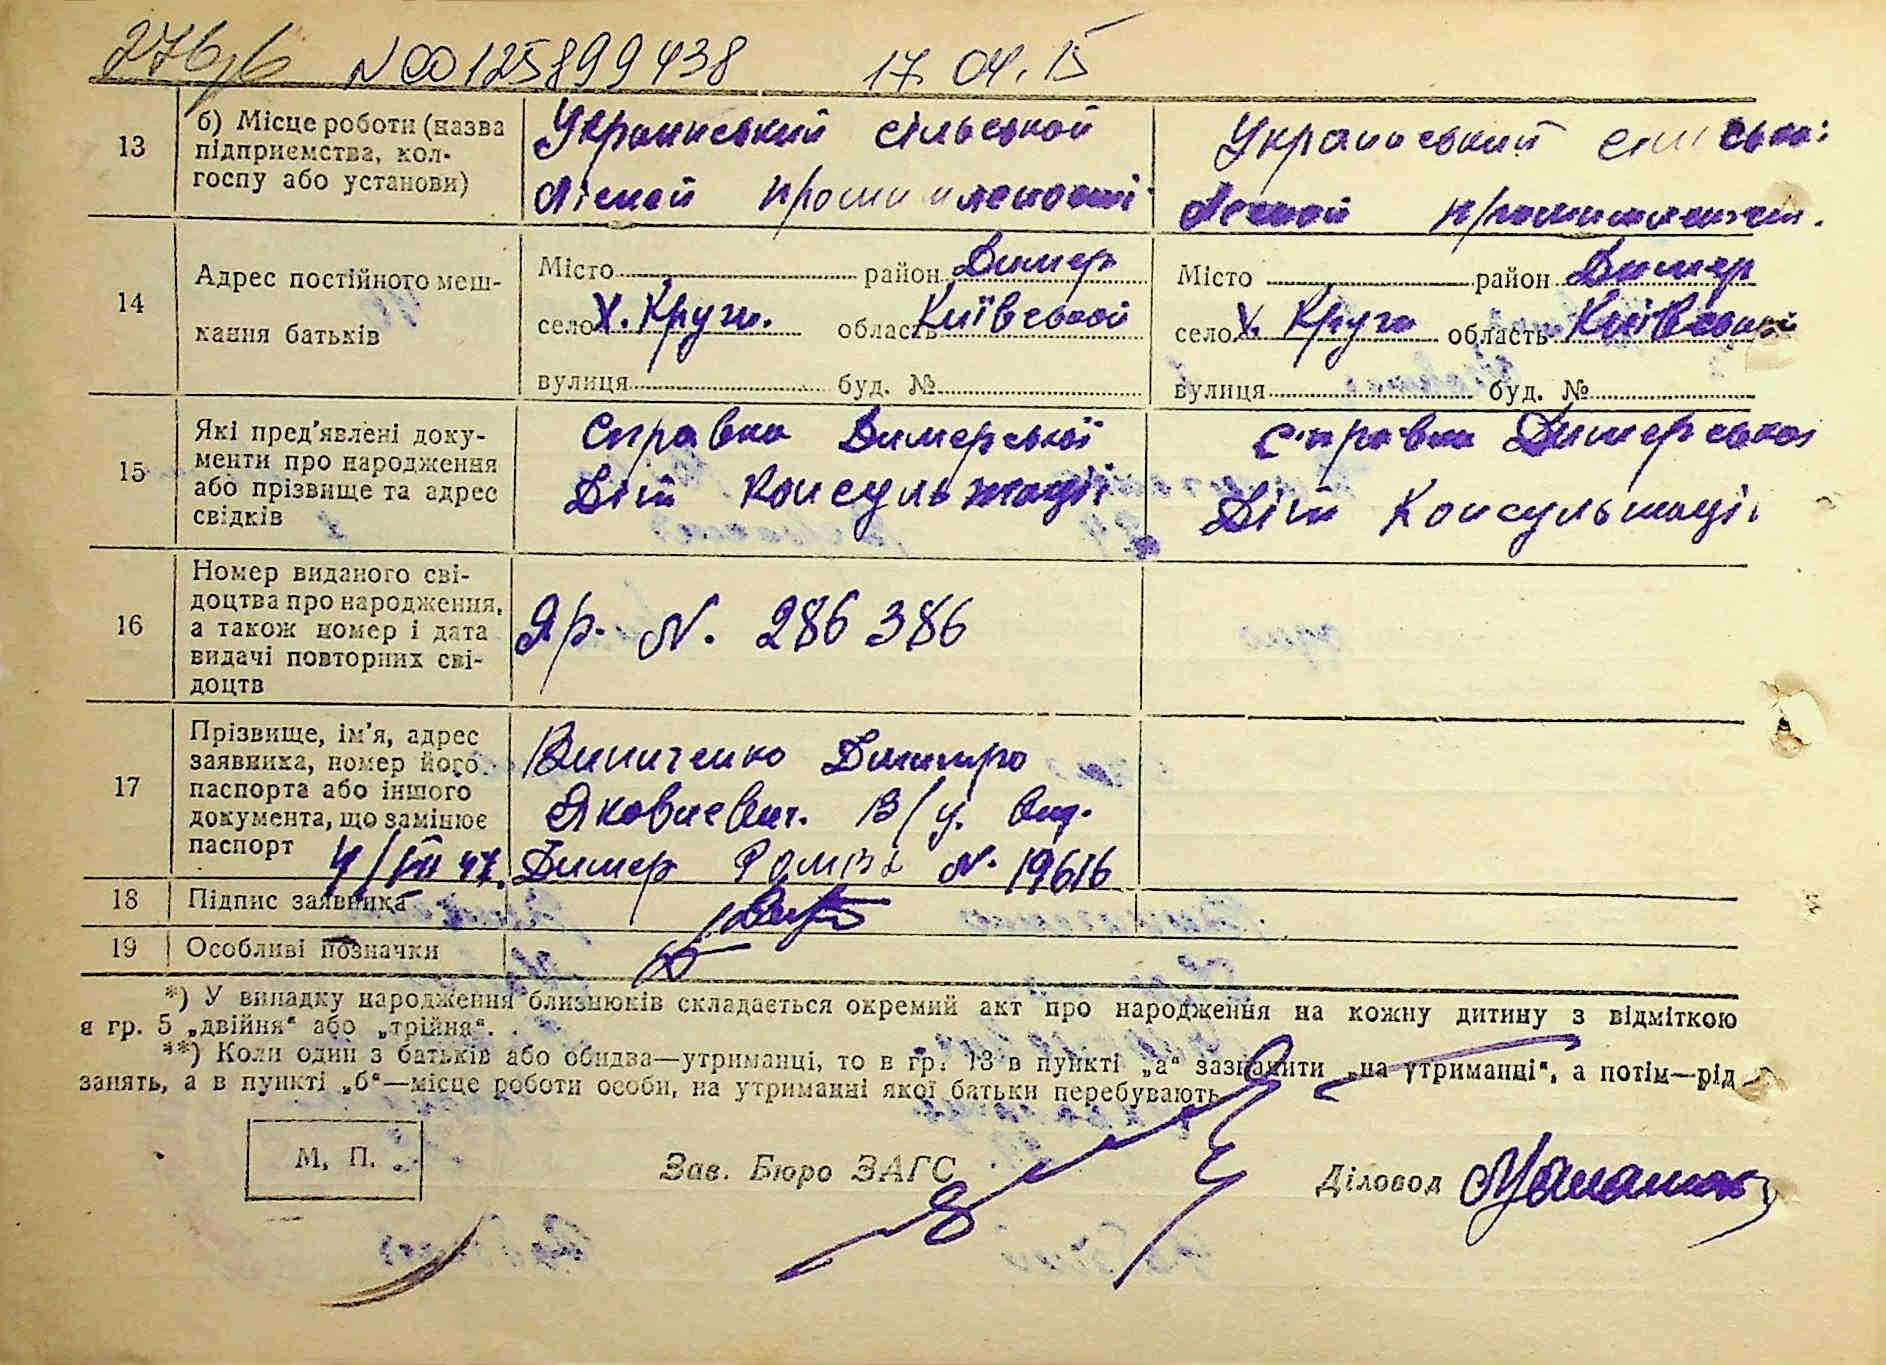 276/6 N 00125899438 17.04.15
13 б) Місце роботи (назва підприємства, колгоспу або установи)
Український сільської
лісної промишленості
Український сільської
лісной промишленості.
14 Адрес постійного мешкання батьків
Місто район Димер
село Х. Круги. область Київської
вулиця буд. №
Місто район Димер
село Х. Круги область Київської
вулиця буд. №
15 Які пред'явлені документи про народження або прізвище та адрес свідків
Справка Димерської
Діт консультації
Справка Димерської
Діт Консультації
16 Номер виданого свідоцтва про народження, а також номер і дата видачі повторних свідоцтв
Яр. N. 286386
17 Прізвище, ім'я, адрес заявника, номер його паспорта або іншого документа, що замінює паспорт
Виниченко Дмитро
Яковлевич. В/у. вид.
4/VII 47. Димер N. 19616
18 Підпис заявника
19 Особливі позначки
*) У випадку народження близнюків складається окремий акт про народження на кожну дитину з відміткою
в гр. 5 „двійня“ або „трійня“.
**) Коли один з батьків або обидва—утриманці, то в гр. 13 в пункті „а“ зазначити „на утриманці“, а потім—рід
занять, а в пункті „б“—місце роботи особи, на утриманні якої батьки перебувають.
М. П. Зав. Бюро ЗАГС Діловод